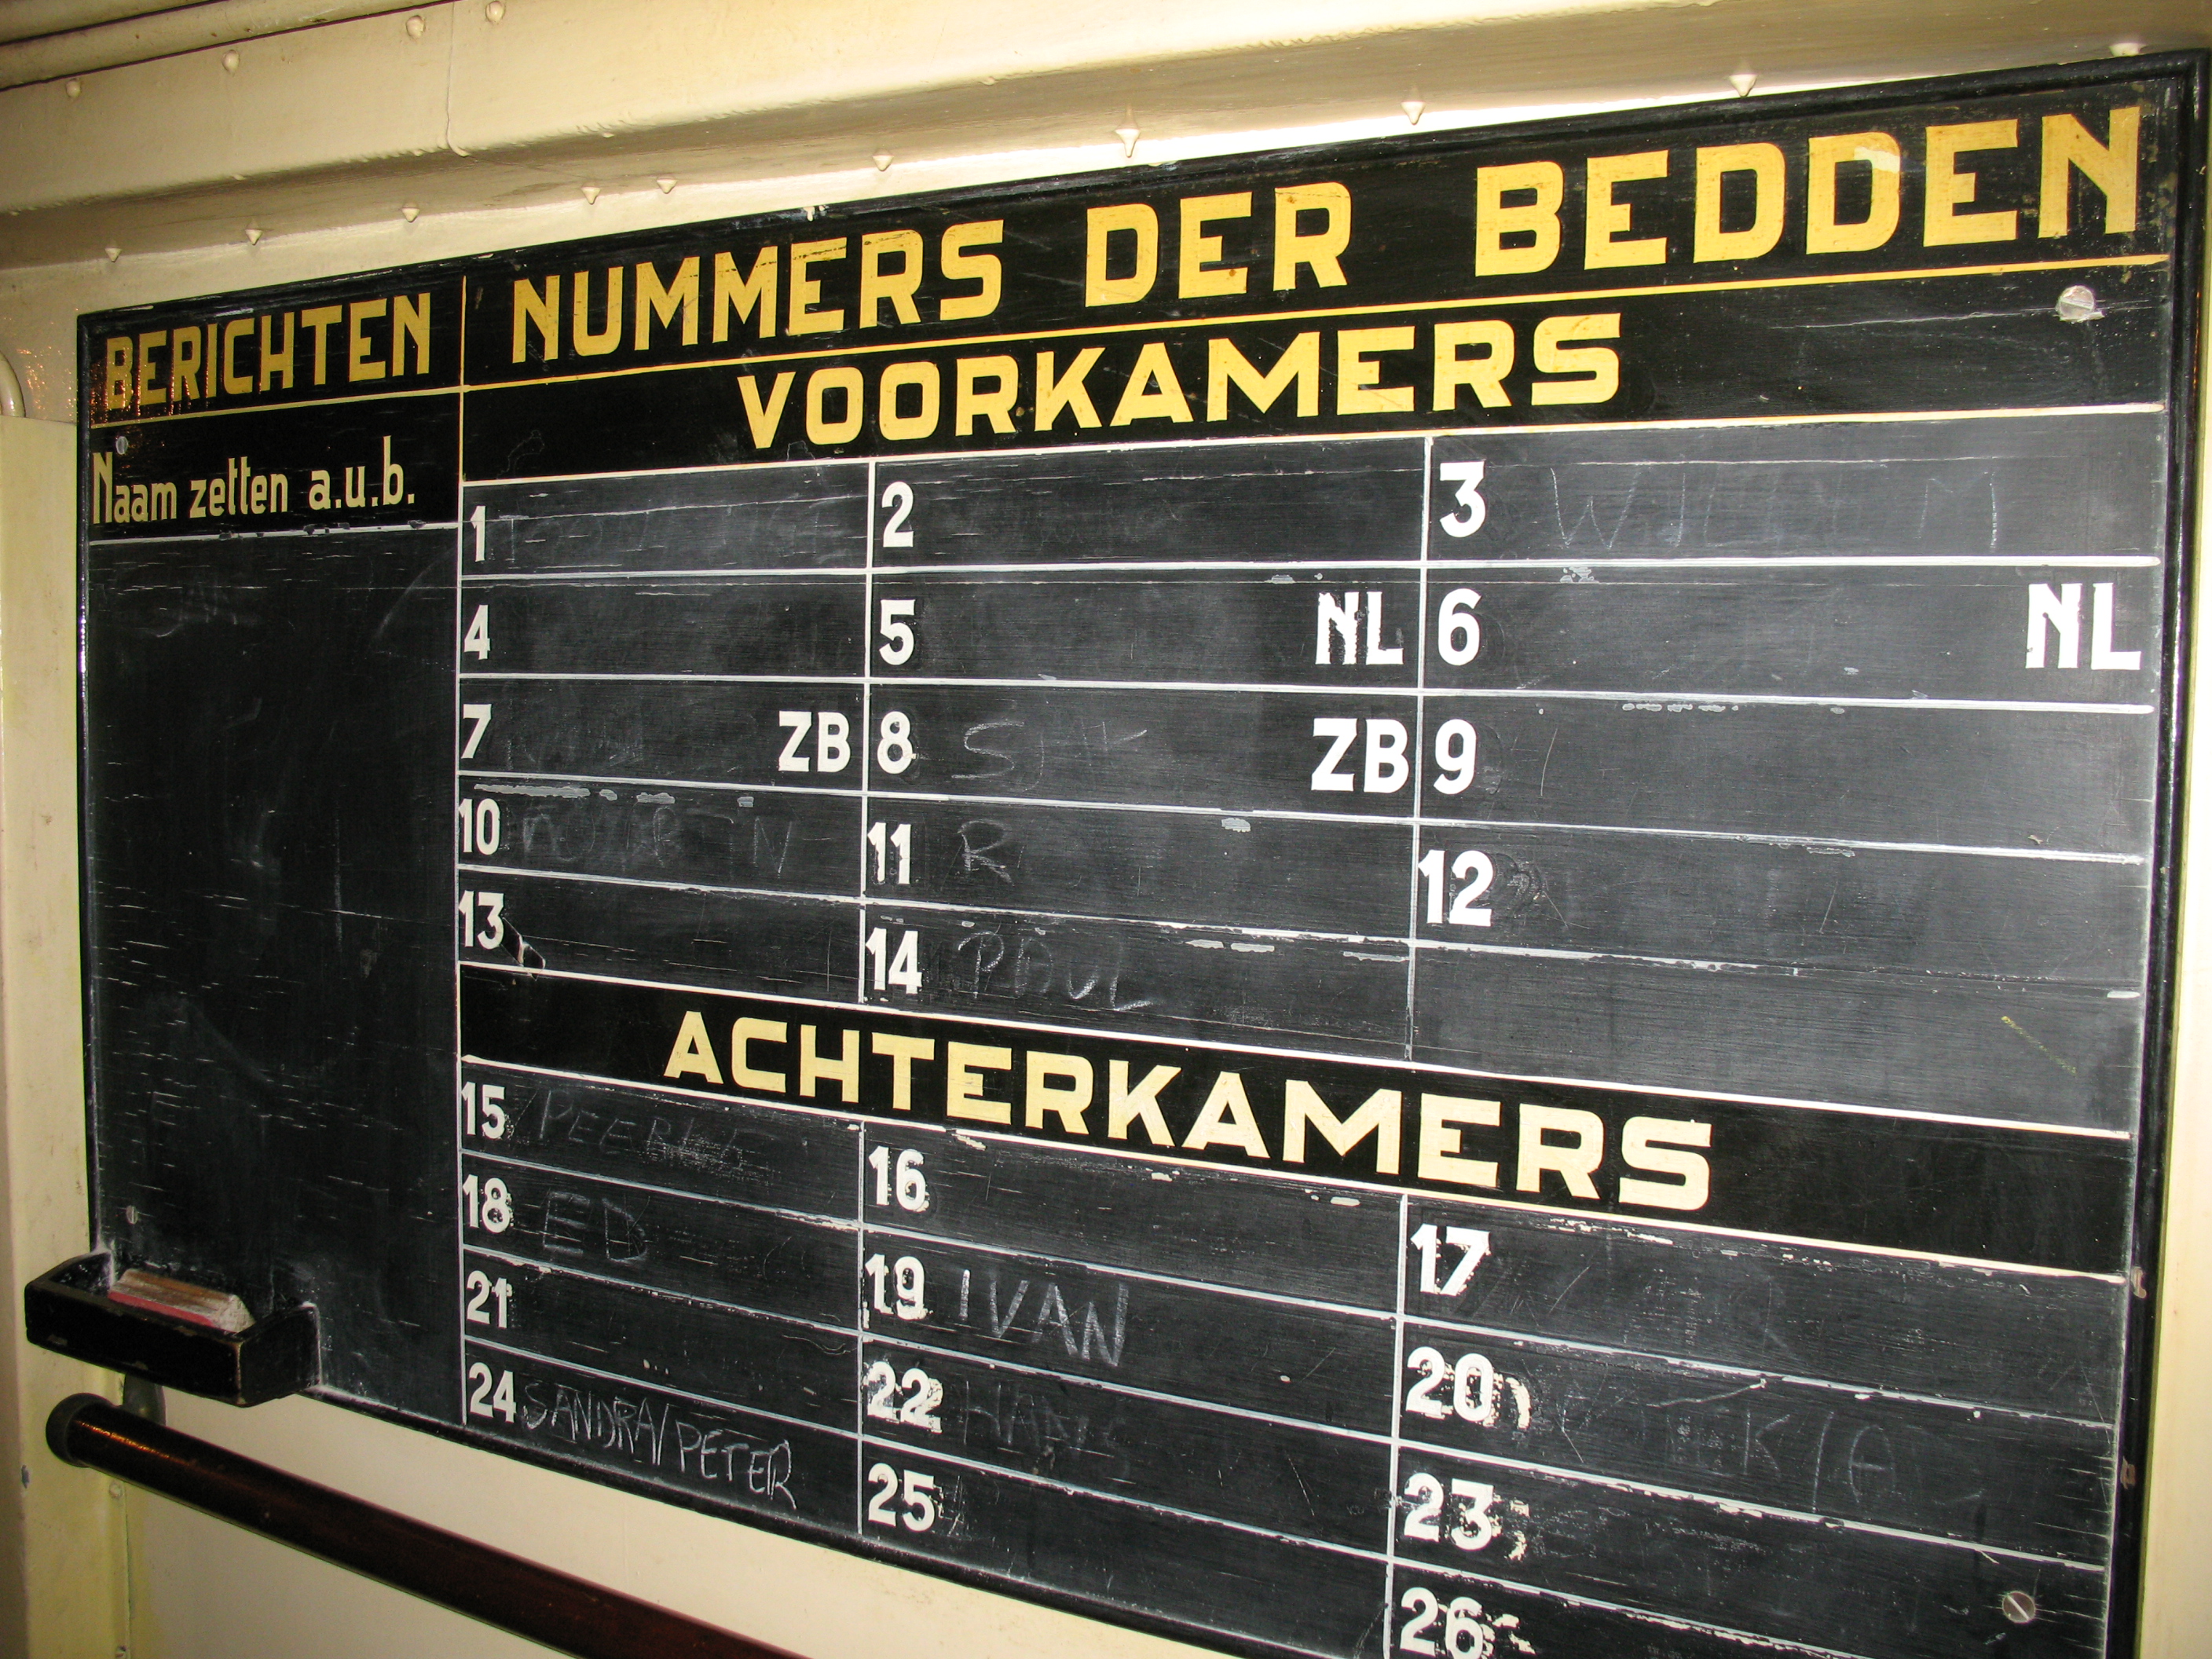 BERICHTEN
Naam zetten a.u.b.
NUMMERS DER BEDDEN
VOORKAMERS
1 2 3 WILLEM
4 5 NL 6 NL
7 ZB 8 ZB 9
10 11 R 12
13 14 PAUL
ACHTERKAMERS
15 16 17
18 ED 19 IVAN 20
21 22 HANS 23
24 SANDRA/PETER 25 26